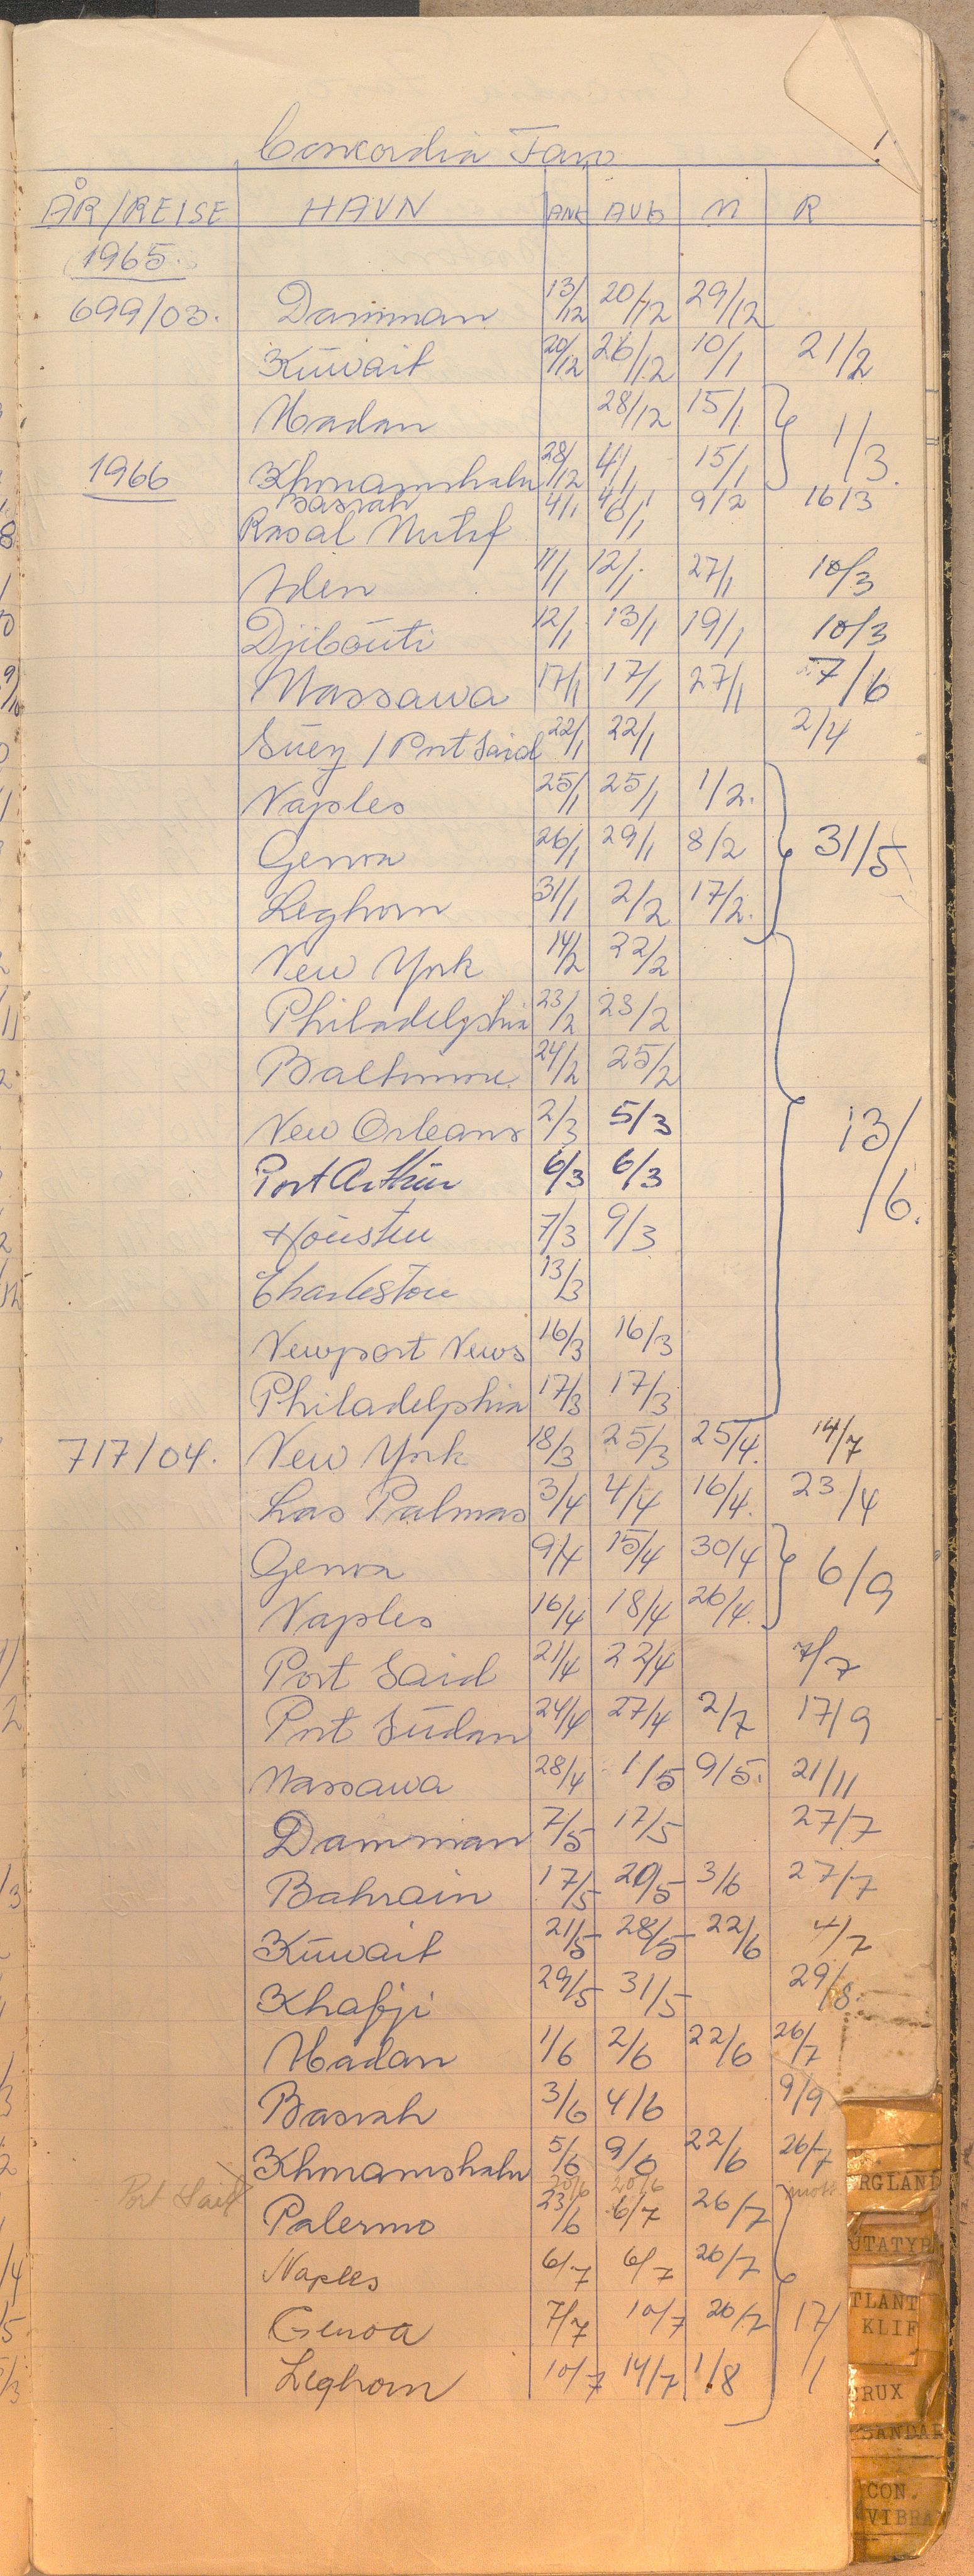 Concordia Faro 1.
ÅR/REISE HAVN ANK AVG M R
1965.
699/03. Damman 13/12 20/12 29/12
Kuwait 20/12 26/12 10/1 21/2
Abadan 28/12 15/1 1/3.
1966 Khoramshahr 28/12 4/1 15/1
Basrah 4/1 9/2 16/3
Rasal 6/1
Aden 11/1 12/1. 27/1 10/3
Djibouti 12/1 13/1 19/1 10/3
Massawa 17/1 17/1 27/1 7/6
Suez / Port Said 22/1 22/1 2/4
Naples 25/1 25/1 1/2.
Genoa 26/1 29/1 8/2 31/5
Leghorn 31/1 2/2 17/2.
New York 14/2 22/2
Philadelphia 23/2 23/2
Baltimore 24/2 25/2
New Orleans 2/3 5/3 13/6.
Port Arthur 6/3 6/3
Houston 7/3 9/3
Charleston 13/3
Newport News 16/3 16/3
Philadelphia 17/3 17/3
717/04. New York 18/3 25/3 25/4. 14/7
Las Palmas 3/4 4/4 16/4. 23/4
Genoa 9/4 15/4 30/4 6/9
Naples 16/4 18/4 26/4.
Port Said 21/4 22/4 7/7
Port Sudan 24/4 27/4 2/7 17/9
Massawa 28/4 1/5 9/5. 21/11
Damman 7/5 17/5 27/7
Bahrain 17/5 20/5 3/6 27/7
Kuwait 21/5 28/5 22/6 4/7
Khafji 29/5 31/5 29/8.
Abadan 1/6 2/6 22/6 26/7
Basrah 3/6 4/6 9/9
Khoramshahr 5/6 9/6 22/6 26/7
Port Said 20/6 20/6
Palermo 23/6 6/7 26/7
Naples 6/7 6/7 26/7
Genoa 7/7 10/7 26/7 17/1
Leghorn 10/7 14/7 1/8
RGLAND
TLANT
KLIF
RUX
SANDAR
CON.
VIBRA